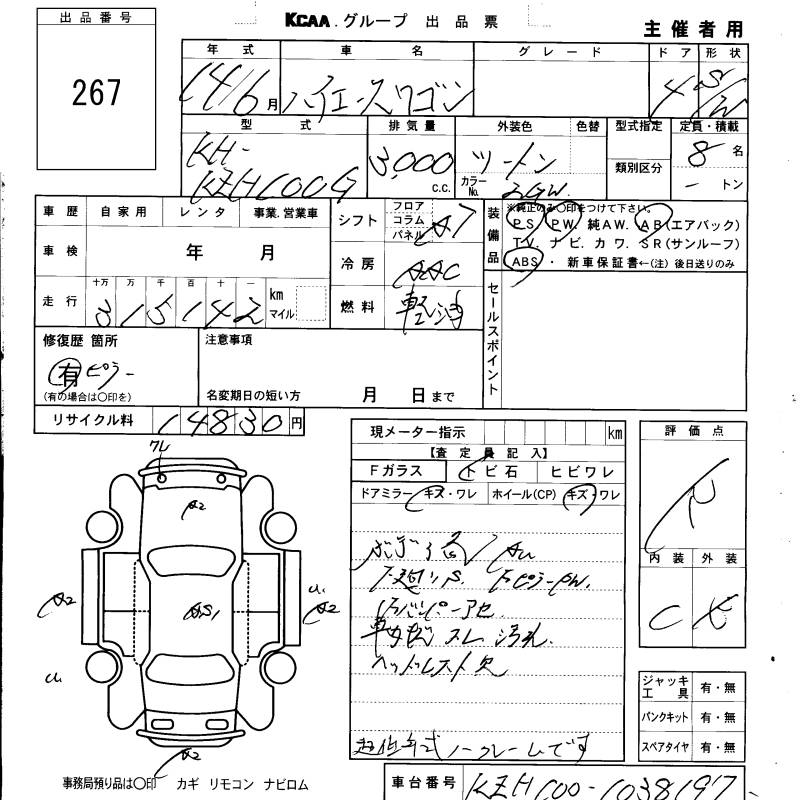 出品番号
267
KCAA. グループ 出品票
主催者用
年式 車名 グレード ドア 形状
14/6月 ハイエースワゴン 4 S/W
型式 排気量 外装色 色替 型式指定 定員・積載
KH- 3,000 c.c. ツートン 8名
KZH100G カラーNo. 2GW. 類別区分 - トン
車歴 自家用 レンタ 事業、営業車
シフト フロア コラム パネル A7
装備品 ※純正のみ○印をつけて下さい。
PS PW. 純AW. AB(エアバック)
TV. ナビ. カワ. SR(サンルーフ)
ABS・新車保証書←(注)後日送りのみ
車検 年 月
冷房 AAC
走行 十万 万 千 百 十 一
315142 km マイル
燃料 軽油
セールスポイント
修復歴 箇所
有 ピラー
(有の場合は○印を)
注意事項
名変期日の短い方 月 日まで
リサイクル料 14830円
現メーター指示 km
【査定員記入】
Fガラス トビ石 ヒビワレ
ドアミラー キズ・ワレ ホイール(CP) キズ・ワレ
評価点
R
内装 外装
C E
ワレ
A2
A2
AS1
U1
A2
U1
A2
ボディ
下廻りS. FピラーPW.
バンパーアセ
スレ 汚れ.
ヘッドレスト欠
ノークレームです
ジャッキ工具 有・無
パンクキット 有・無
スペアタイヤ 有・無
事務局預り品は○印 カギ リモコン ナビロム
車台番号 KZH100-1038197